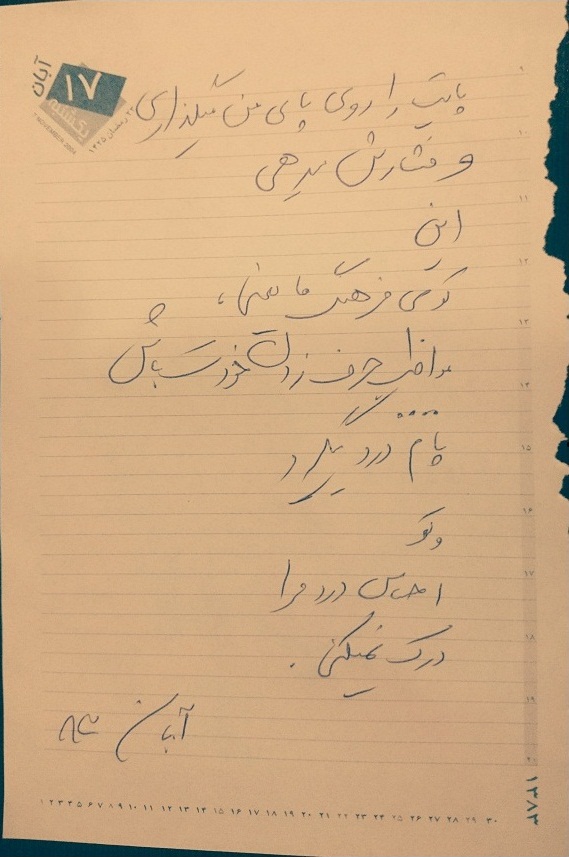 آبان
۱۷
یکشنبه
۲۳ رمضان ۱۴۲۵
7 NOVEMBER 2004
پایت را روی پای من میگذاری
و فشارش میدهی
این
توی فرهنگ ما یعنی،
مواظب حرف زدن خودت باش
....
پام درد میگیرد
و تو
احساس درد مرا
درک نمیکنی.
آبان ۸۳
۹
۱۰
۱۱
۱۲
۱۳
۱۴
۱۵
۱۶
۱۷
۱۸
۱۹
۲۰
۱۳۸۳
۱ ۲ ۳ ۴ ۵ ۶ ۷ ۸ ۹ ۱۰ ۱۱ ۱۲ ۱۳ ۱۴ ۱۵ ۱۶ ۱۷ ۱۸ ۱۹ ۲۰ ۲۱ ۲۲ ۲۳ ۲۴ ۲۵ ۲۶ ۲۷ ۲۸ ۲۹ ۳۰